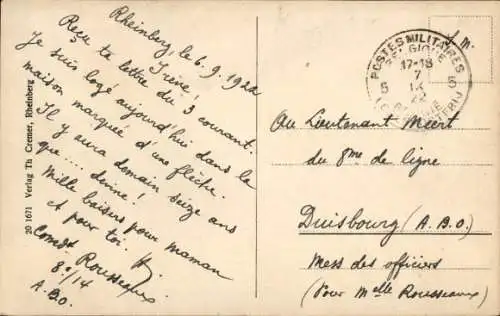 Rheinberg, le 6.9.1922
Irène!
Reçu ta lettre du 3 courant.
Je suis logé aujourd'hui dans la
maison marqué d'une flèche.
Il y aura demain seize ans
que... devine!
Mille baisers pour maman
et pour toi.
Comdt Rousseaux
8e/14
A.B.O.
20 1671 Verlag Th Cremer, Rheinberg
POSTES MILITAIRES
BELGIQUE
17-18
7
5 5
IX
22
S. M.
Au Lieutenant Meert
du 8me de ligne
Duisbourg (A.B.O.)
Mess des officiers
(Pour Melle Rousseaux)